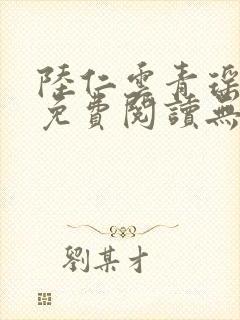 陸仁雲青瑶
免費閱讀無
劉某才